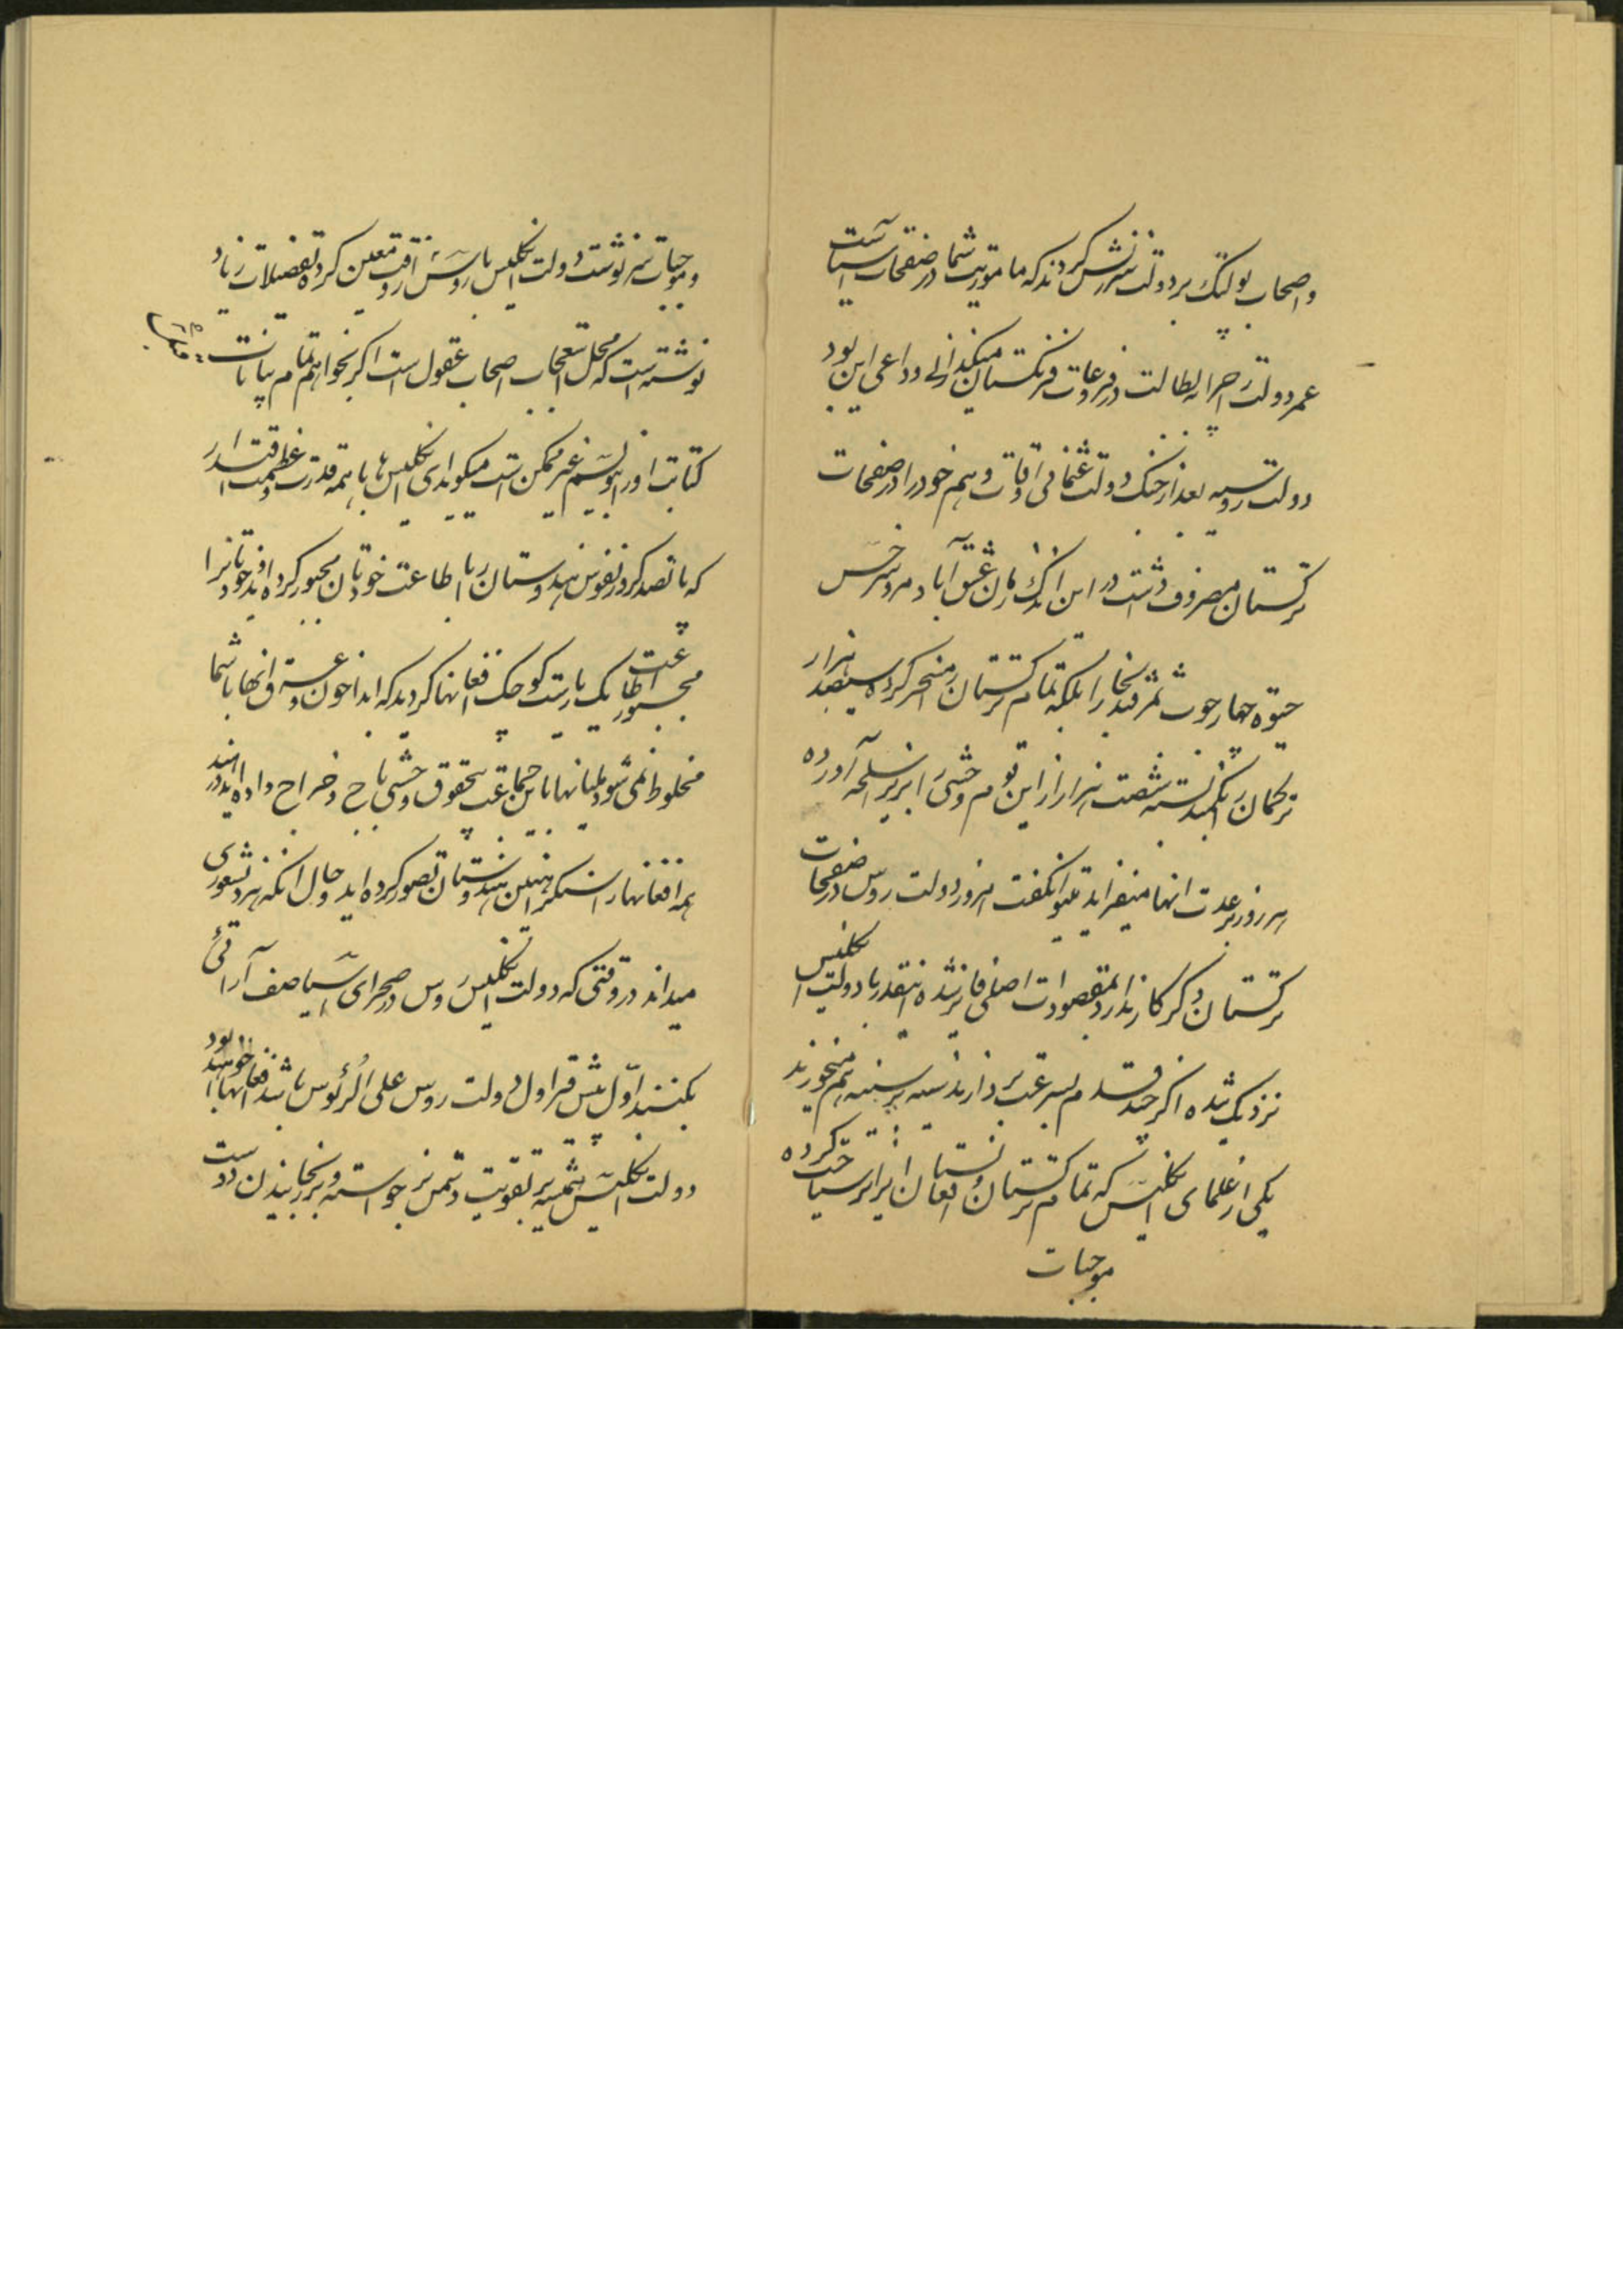 و اصحاب پولتیک بر دولت سرزنش کردند که ماموریت شما در صفحات آسیاست
عمر دولت را چرا به بطالت در فروعات فرنگستان میگذرانی و داعی این بود
دولت روسیه بعد از جنگ دولت عثمانی اوقات و هم خود را در صفحات
ترکستان مصروف داشت در این اندک زمان عشق آباد مرو سرخس
خیوه چهارجوب سمرقند بخارا بلکه تمام ترکستان را مسخر کرده سیصد هزار
ترکمان را بکمند بسته شصت هزار از این قوم وحشی را بزیر اسلحه آورده
هر روز بر عدت آنها میفزاید میتوان گفت امروز دولت روس در صفحات
ترکستان دگر کار ندارد بمقصودات اصلی فایز شده آنقدر با دولت انگلیس
نزدیک شده اگر چند قدم بسرعت بردارند سینه بر سینه هم میخورند
یکی از علمای انگلیس که تمام ترکستان و افغانستان ایران را سیاحت کرده
موجبات
و موجبات سرنوشت دولت انگلیس با روس را در آن وقت معین کرده تفصیلات زیاد
نوشته است که محل استعجاب اصحاب عقول است اگر بخواهم تمام بیانات
کتابت او را بنویسم غیر ممکن است میگوید ای انگلیس ها با همه قدرت و عظمت اقتدار
که پانصد کرور نفوس هندوستان را با طاعت خودتان مجبور کرده اید خودتانرا
مجبور اطاعت یک پارت کوچک افغانها کردید که ابدا خون و عرق آنها با شما
مخلوط نمی شود ملیانها باین جماعت بیحقوق وحشی باج و خراج داده اید
همه افغانها را سنگر آهنین هندوستان تصور کرده اید و حال آنکه هر ذی شعوری
میداند در وقتی که دولت انگلیس روس در صحرای آسیا صف آرائی
بکنند اول پیش قراول دولت روس علی الرئوس باشد افغانها خواهند بود
دولت انگلیس همیشه بر تقویت دشمن برخواسته و بر رنجانیدن دوست